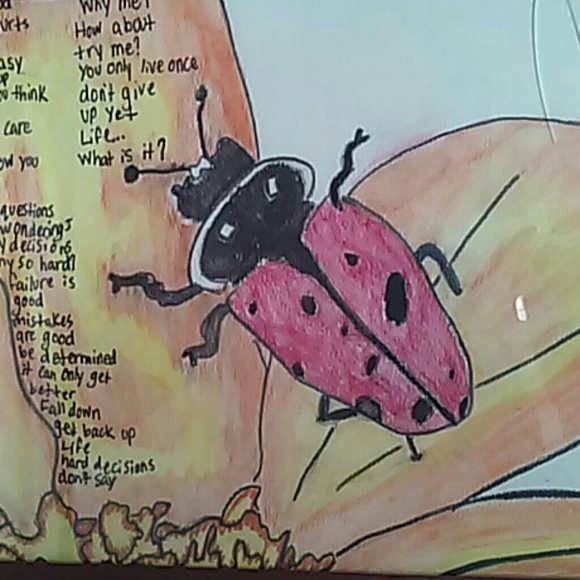 urts
asy
think
care
ow you
questions
wonderings
decisions
so hard?
failure is
good
mistakes
are good
be determined
it can only get
better
Fall down
get back up
Life
hard decisions
don't say
Why me?
How about
try me?
You only live once
don't give
up yet
Life...
What is it?